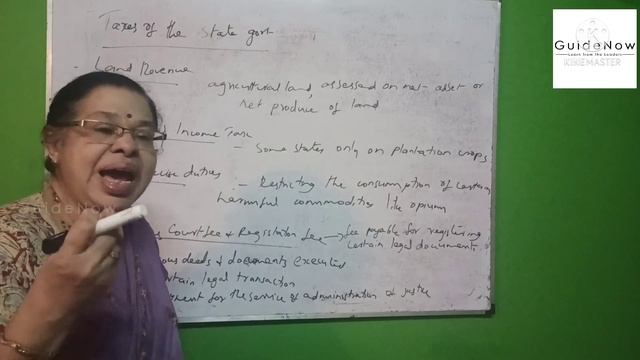 Taxes of the State govt
Land Revenue
agricultural land, assessed on net asset or
net produce of land
Income Tax
- Some states only on plantation crops
duties - Restricting the consumption of certain
harmful commodities like opium
Court fee & Registration fee → fee payable for registering
certain legal documents
deeds & documents executed
legal transaction
for the service of administration of justice
GuideNow
Learn from the Leaders
KINEMASTER
GuideNow